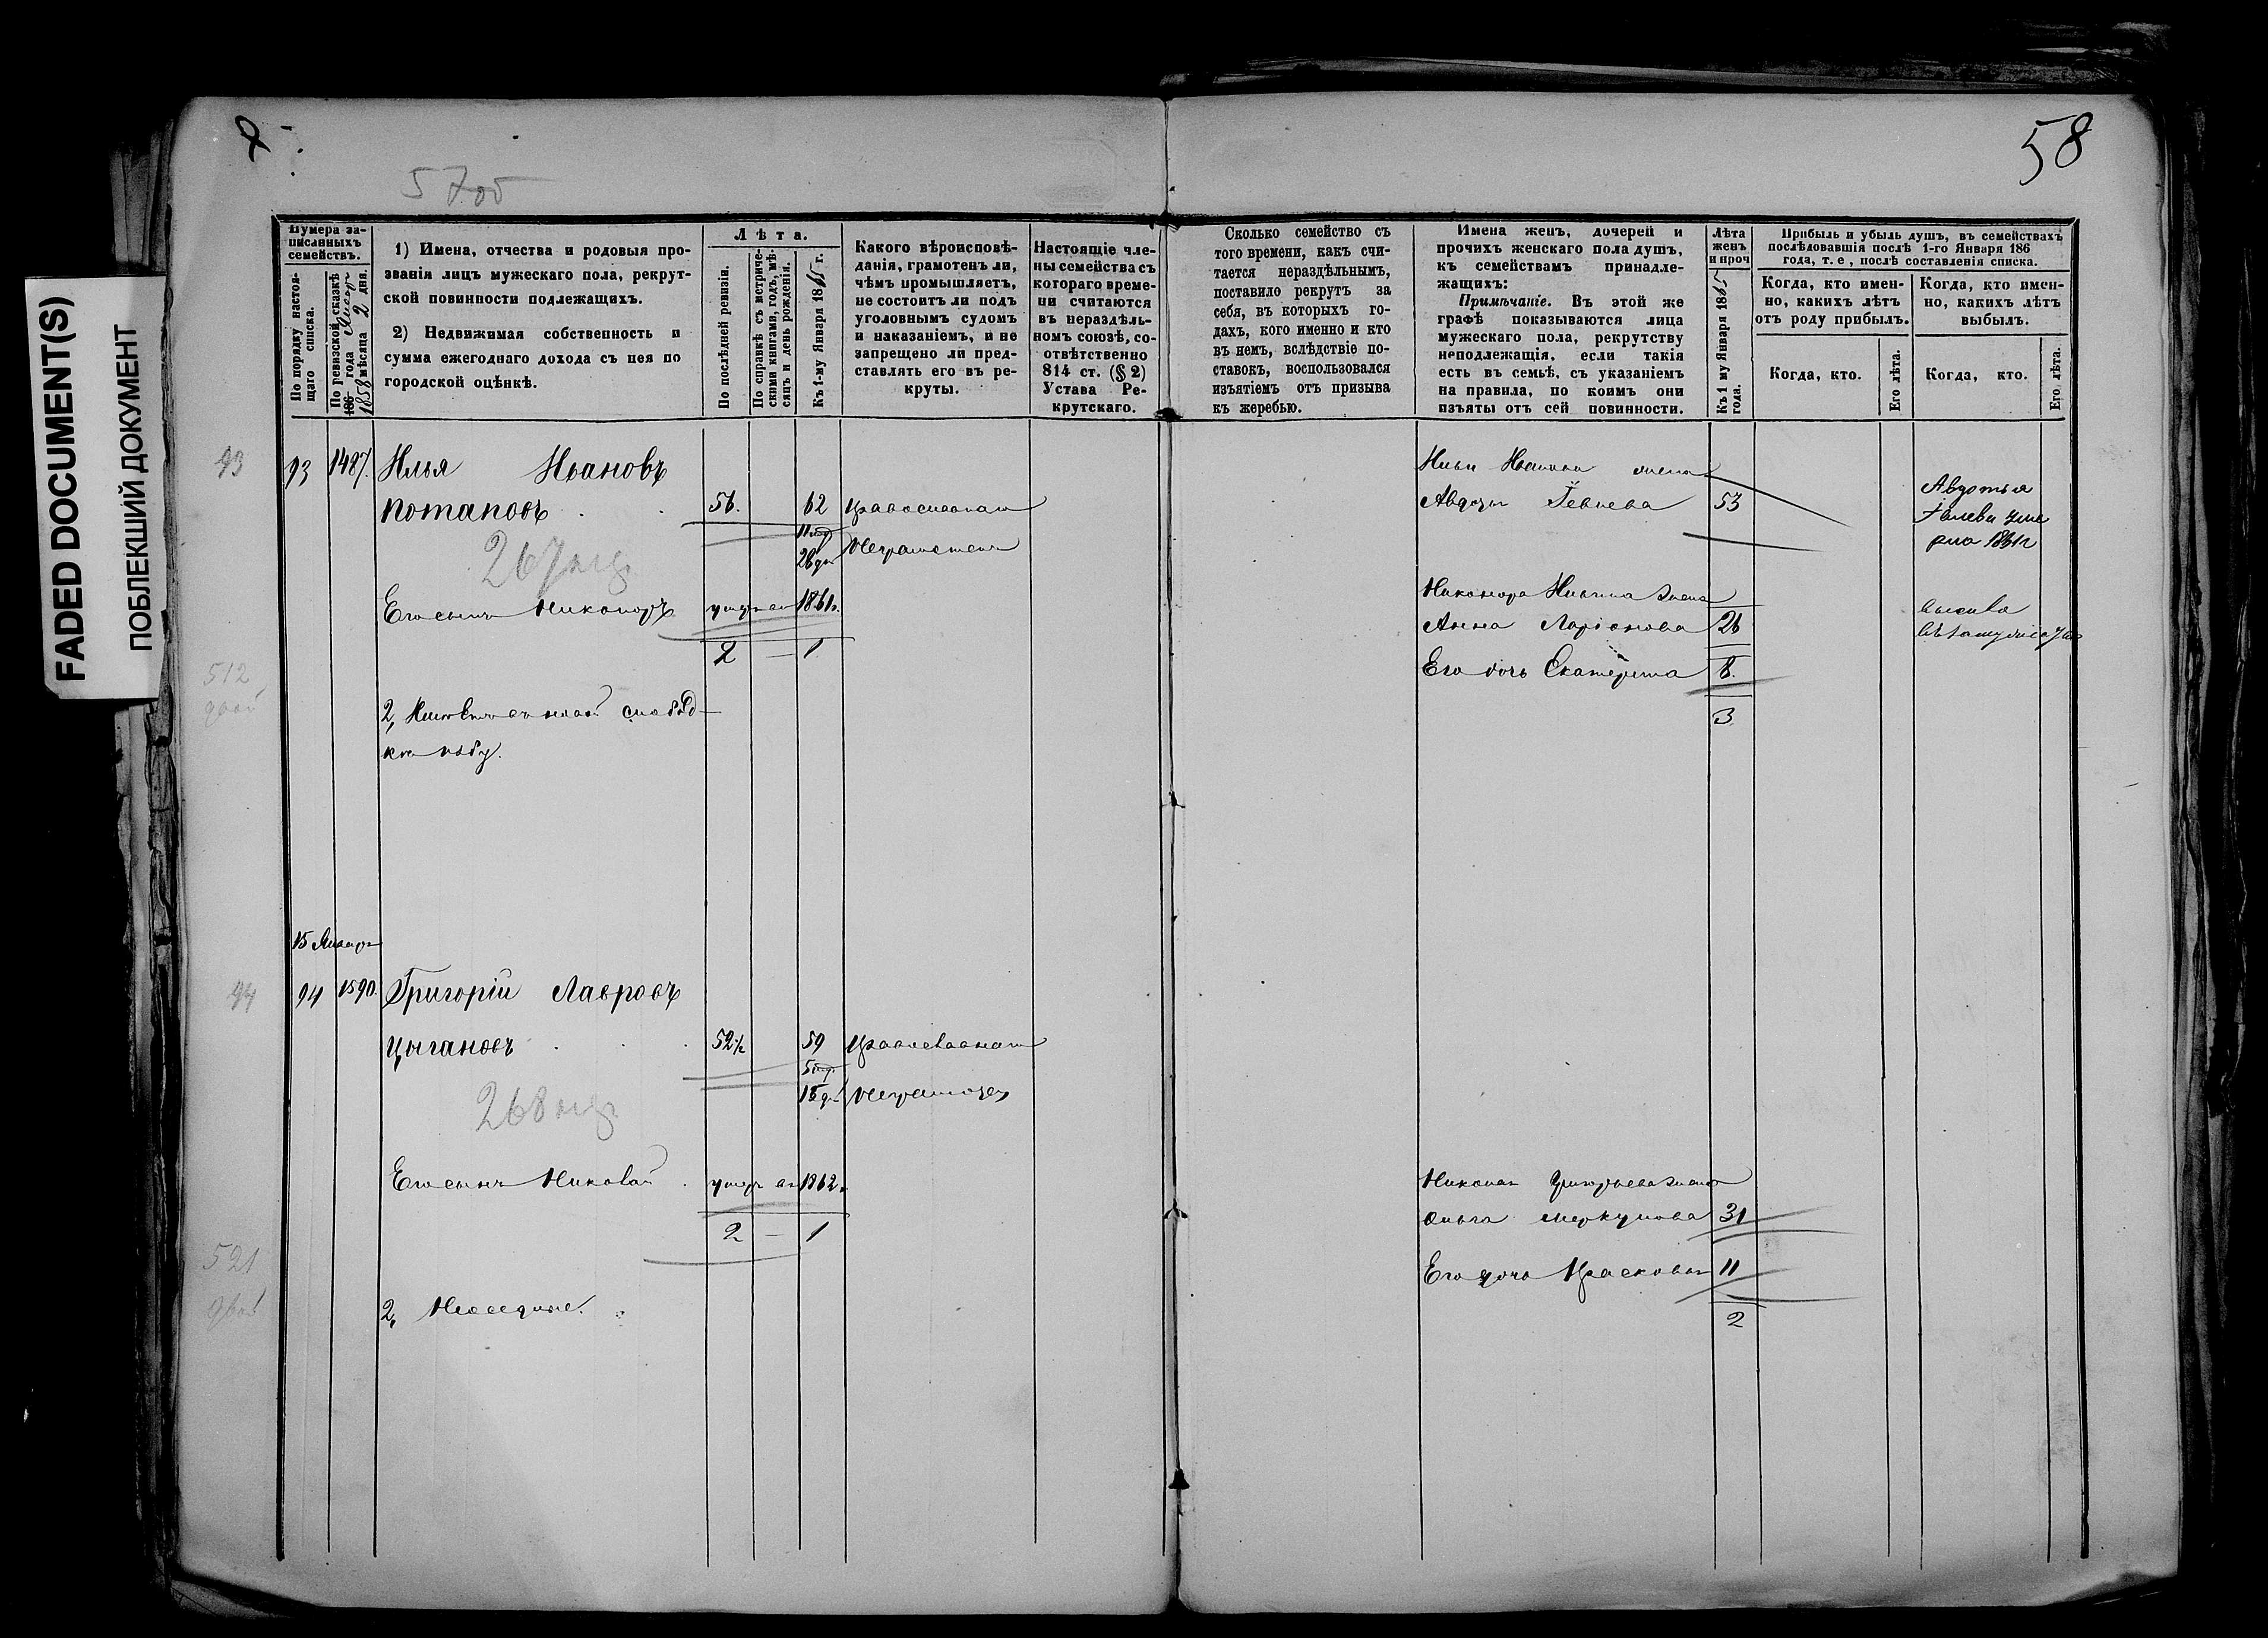 FADED DOCUMENT(S)
ПОБЛЕКШИЙ ДОКУМЕНТ
57об
58
Нумера за-
писанныхъ
семействъ.
По порядку настоя-
щаго списка.
По ревизской сказкѣ
186 года
1858 мѣсяца 2 дня.
1) Имена, отчества и родовыя про-
званія лицъ мужескаго пола, рекрут-
ской повинности подлежащихъ.
2) Недвижимая собственность и
сумма ежегоднаго дохода съ нея по
городской оцѣнкѣ.
Лѣта.
По послѣдней ревизіи.
По справкѣ съ метриче-
скими книгами, годъ, мѣ-
сяцъ и день рожденія.
Къ 1-му Января 1865 г.
Какого вѣроисповѣ-
данія, грамотенъ ли,
чѣмъ промышляетъ,
не состоитъ ли подъ
уголовнымъ судомъ
и наказаніемъ, и не
запрещено ли пред-
ставлять его въ ре-
круты.
Настоящіе чле-
ны семейства съ
котораго време-
ни считаются
въ нераздѣль-
номъ союзѣ, со-
отвѣтственно
814 ст. (§ 2)
Устава Ре-
крутскаго.
Сколько семейство съ
того времени, какъ счи-
тается нераздѣльнымъ,
поставило рекрутъ за
себя, въ которыхъ го-
дахъ, кого именно и кто
въ немъ, вслѣдствіе по-
ставокъ, воспользовался
изъятіемъ отъ призыва
къ жеребью.
Имена женъ, дочерей и
прочихъ женскаго пола душъ,
къ семействамъ принадле-
жащихъ:
Примѣчаніе. Въ этой же
графѣ показываются лица
мужескаго пола, рекрутству
неподлежащія, если такія
есть въ семьѣ, съ указаніемъ
на правила, по коимъ они
изъяты отъ сей повинности.
Лѣта
женъ
и проч
Къ 1 му Января 1865
года.
Прибыль и убыль душъ, въ семействахъ
послѣдовавшія послѣ 1-го Января 186
года, т. е, послѣ составленія списка.
Когда, кто имен-
но, какихъ лѣтъ
отъ роду прибылъ.
Когда, кто имен-
но, какихъ лѣтъ
выбылъ.
Когда, кто.
Его лѣта.
Когда, кто.
Его лѣта.
93 93 1487. Илья Ивановъ
Потаповъ 56. 62 Православнаго
11 мѣ
28 дн Неграмотенъ
267
Его сынъ Никоноръ умеръ въ 1861г.
2 — 1
512
2,
избу.
Ильи Иванова жена
Авдотья 53
Никонора Ильина жена
Анна Ларіонова 26
Его дочь Екатерина 8.
3
Авдотья
уме
рла 1861г
15 Января
94 94 1590. Григорій Лавровъ
Цыгановъ 52½ 59 Православнаго
5 мѣ.
15 д. Неграмотен
268
Его сынъ Николай умеръ въ 1862.
2 — 1
521
2,
Николая Григорьева жена
Ольга Меркулова 31
Его дочь Прасковья 11
2